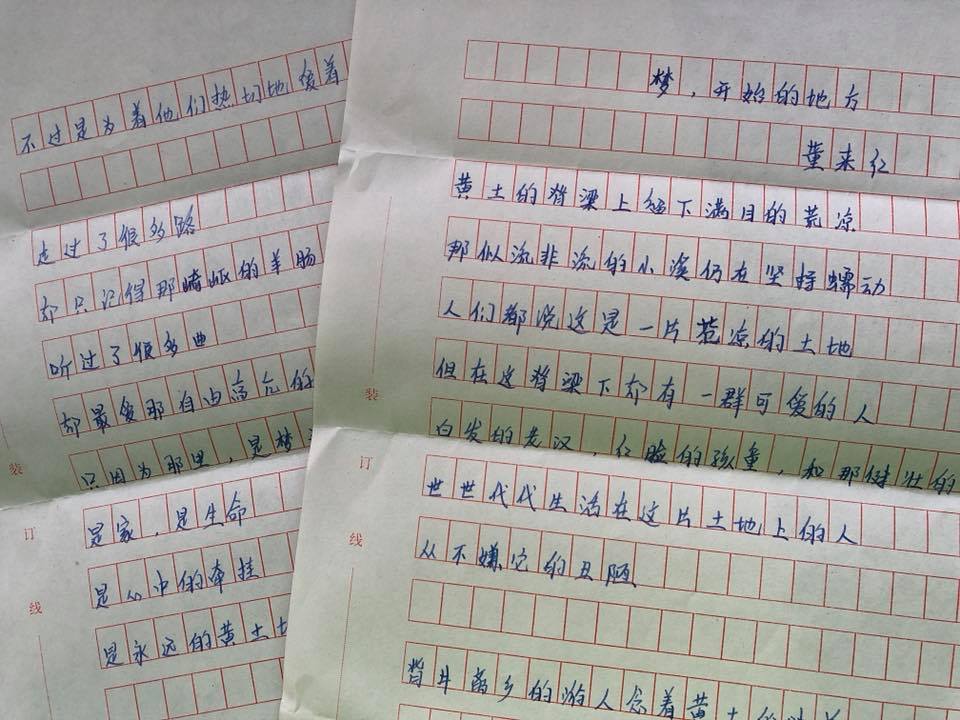 不过是为着他们热切地爱着
走过了很多路
却只记得那崎岖的羊肠
听过了很多曲
却最爱那自由高亢的
只因为那里，是梦
是家，是生命
是心中的牵挂
是永远的黄土地
装
订
线
梦，开始的地方
董来红
黄土的脊梁上留下满目的荒凉
那似流非流的小溪仍在坚持蠕动
人们都说这是一片荒凉的土地
但在这脊梁下却有一群可爱的人
白发的老汉，红脸的孩童，和那健壮的
世世代代生活在这片土地上的人
从不嫌它的丑陋
背井离乡的游人念着黄土的
装
订
线